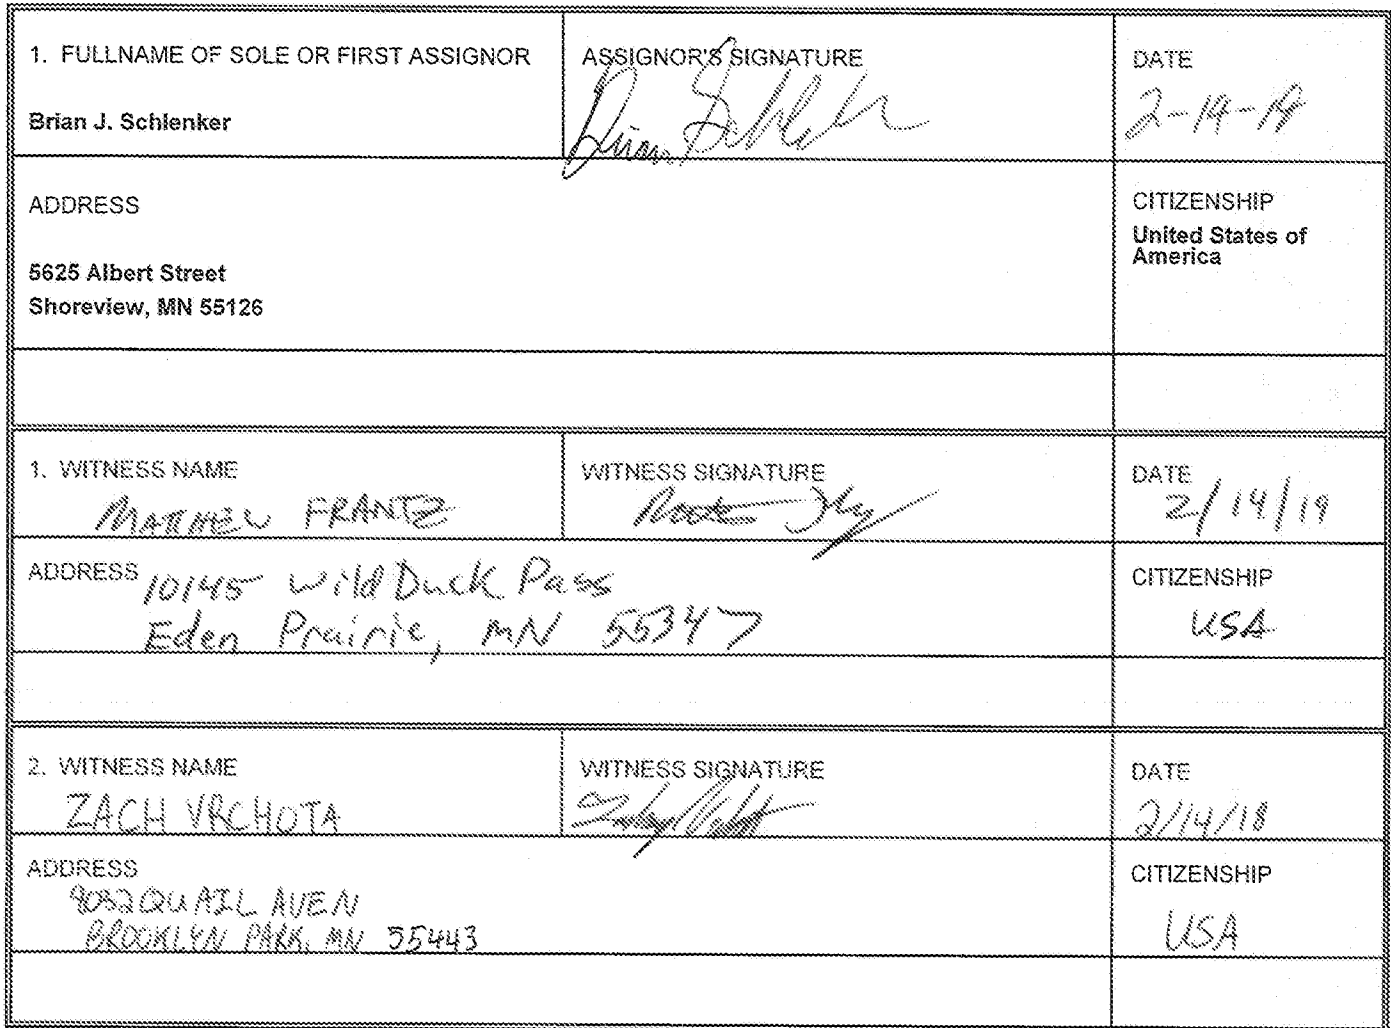 1. FULLNAME OF SOLE OR FIRST ASSIGNOR
Brian J. Schlenker
ASSIGNOR'S SIGNATURE
Brian Schlenker
DATE
2-14-19
ADDRESS
5625 Albert Street
Shoreview, MN 55126
CITIZENSHIP
United States of
America
1. WITNESS NAME
MATTHEW FRANTZ
WITNESS SIGNATURE
DATE
2/14/19
ADDRESS
10145 Wild Duck Pass
Eden Prairie, MN 55347
CITIZENSHIP
USA
2. WITNESS NAME
ZACH VRCHOTA
WITNESS SIGNATURE
DATE
ADDRESS
QUAIL AVE N
BROOKLYN PARK, MN 55443
CITIZENSHIP
USA